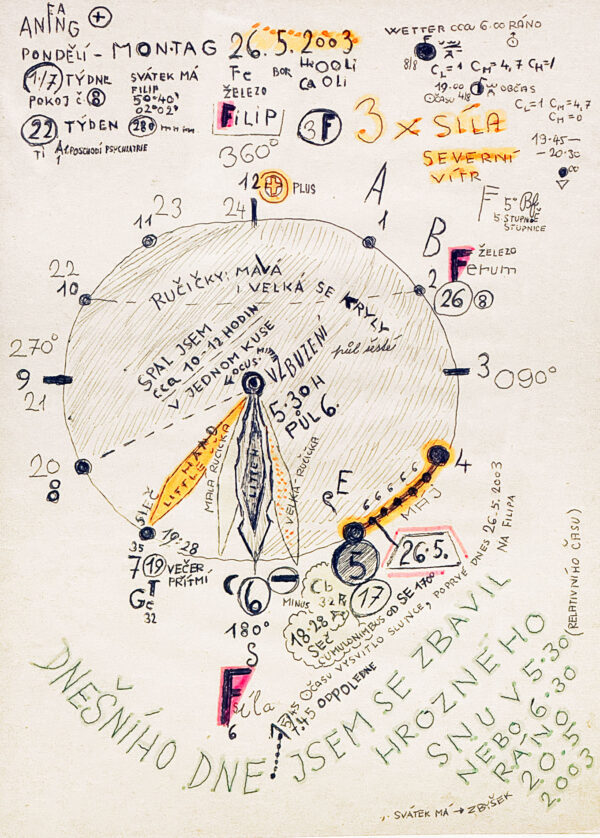 FA
ANING +
PONDĚLÍ - MONTAG 26.5.2003
1/7 TÝDNE
POKOJ č. 8
SVÁTEK MÁ
FILIP
50°40'
02°02"
Fe
ŽELEZO
BOR
HOOLi
CaOLi
22 TÝDEN
280 mm
FiLIP
3F
3 x SÍLA
SEVERNÍ
VÍTR
WETTER cca 6.00 RÁNO
8/8
CL=1 CM=4,7 CH=/
19.00
OČASU 4/8
W OBČAS
CL=1 CM=4,7
CM=0
19.45-
-20.30
F 5° Bf
5 STUPNĚ
STUPNICE
360°
12 PLUS
24
A
23
11
1
B
ŽELEZO
Ferum
2
26 8
22
10
RUČIČKY: MALÁ
I VELKÁ SE KRYLY
SPAL JSEM
cca 10-12 HODIN
V JEDNOM KUSE
LOCUS.
VZBUZENÍ
půl šesté
5.30 H
PŮL 6.
270°
9
21
3 090°
20
8
HAND
LITTLE
MALÁ RUČIČKA
VELKÁ-RUČIČKA
SIEČ
4
E
6 6 6 6 6
MÁJ
35
19.28
7 19 VEČER
PŘÍTMÍ
GeT
32
6
MINUS
180°
S
5
26.5.
17
NA FILIPA
Cb
18.28
SEČ
CUMULONIMBUS OD SE 17°°
OČASU VYSVITLO SLUNCE, POPRVÉ DNES 26.5.2003
7.45 ODPOLEDNE
Fíla
6
(RELATIVNÍHO ČASU)
DNEŠNÍHO DNE JSEM SE ZBAVIL
HROZNÉHO
SNU V 5.30
NEBO 6.30
RÁNO
20.5
2003
SVÁTEK MÁ → ZBYŠEK